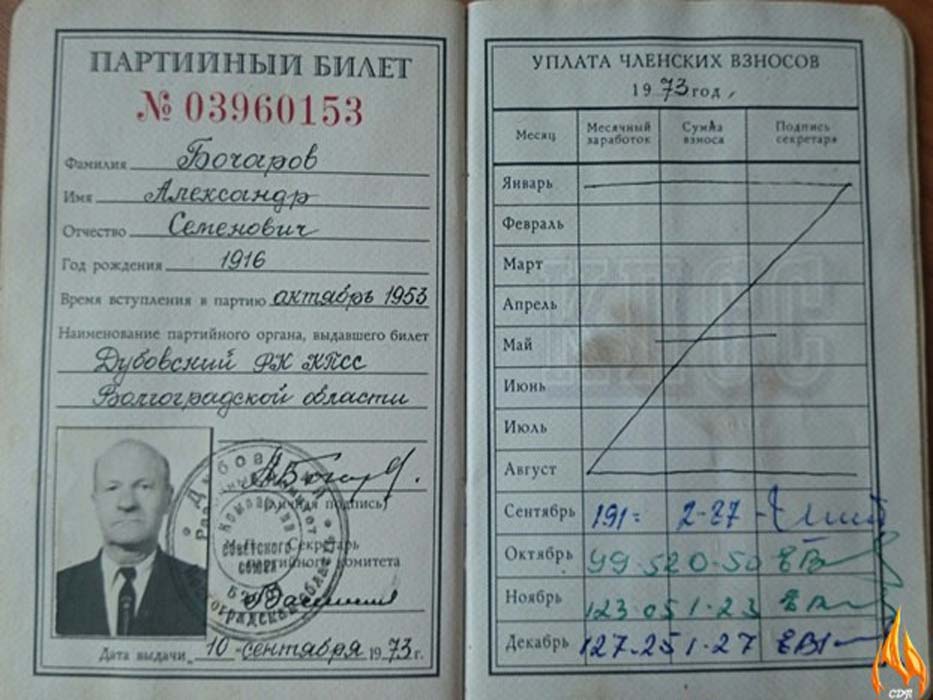 ПАРТИЙНЫЙ БИЛЕТ
№ 03960153
Фамилия Бочаров
Имя Александр
Отчество Семенович
Год рождения 1916
Время вступления в партию октябрь 1953
Наименование партийного органа, выдавшего билет
Дубовский РК КПСС
Волгоградской области
(личная подпись)
Секретарь
партийного комитета
Дата выдачи 10 сентября 1973 г.
УПЛАТА ЧЛЕНСКИХ ВЗНОСОВ
1973 год
Месяц Месячный заработок Сумма взноса Подпись секретаря
Январь
Февраль
Март
Апрель
Май
Июнь
Июль
Август
Сентябрь 191= 2-87
Октябрь 99-52 0-50
Ноябрь 123-05 1-23
Декабрь 127-25 1-27
КПСС
CDR